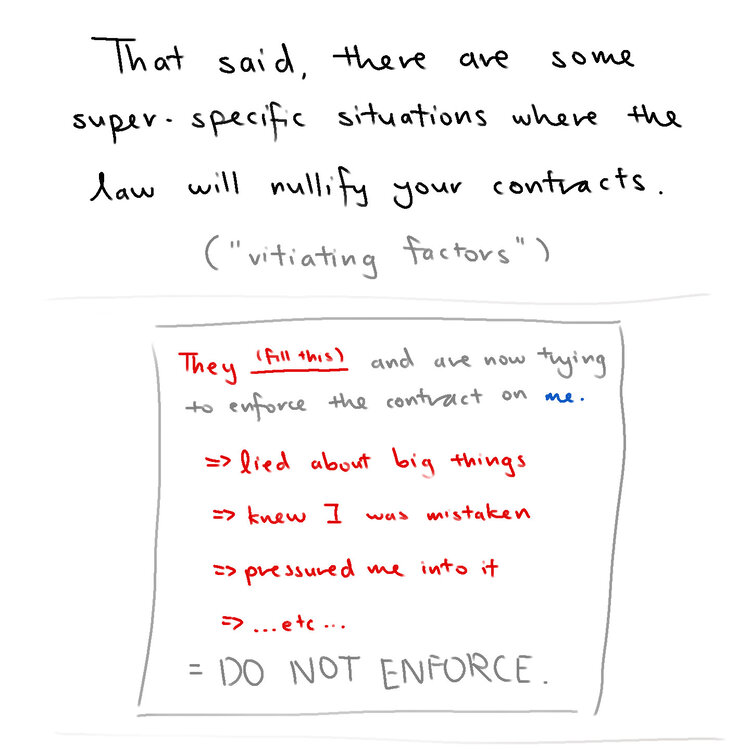 That said, there are some
super-specific situations where the
law will nullify your contracts.
("vitiating factors")
They (fill this) and are now trying
to enforce the contract on me.
=> lied about big things
=> knew I was mistaken
=> pressured me into it
=> ...etc...
= DO NOT ENFORCE.